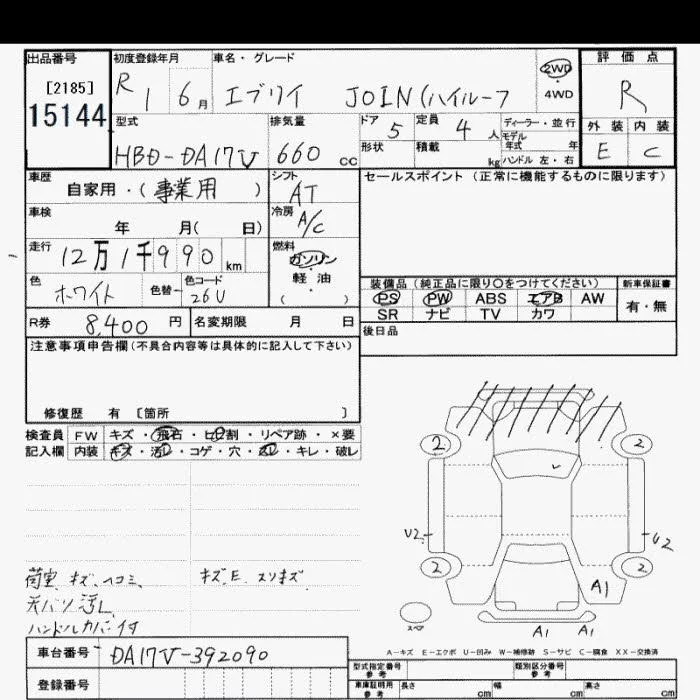 出品番号
[2185]
15144
初度登録年月
R 1 6月
車名・グレード
エブリイ JOIN(ハイルーフ
2WD
・
4WD
評価点
R
型式
HBD-DA17V
排気量
660 cc
ドア 5
定員 4 人
形状
積載 kg
ディーラー・並行
モデル
年式 年
ハンドル 左・右
外装 内装
E C
車歴
自家用・(事業用)
シフト
AT
車検
年 月( 日)
冷房
A/C
走行
12万1千990km
燃料
ガソリン
・
軽油
( )
色
ホワイト
色替
色コード
26U
セールスポイント (正常に機能するものに限ります)
装備品 (純正品に限り○をつけてください)
PS PW ABS エアB AW
SR ナビ TV カワ
新車保証書
有・無
R券 8,400 円
名変期限 月 日
後日品
注意事項申告欄(不具合内容等は具体的に記入して下さい)
修復歴 有 [箇所 ]
検査員
記入欄
FW キズ・飛石・ヒビ割・リペア跡・×要
内装 キズ・汚レ・コゲ・穴・スレ・キレ・破レ
2 2
U2 U2
2 2
A1
スペア
A1 A1
荷室 キズ、ヘコミ、
天バリ汚レ
ハンドルカバー付
キズ、E、スリキズ
A-キズ E-エクボ U-凹み W-補修跡 S-サビ C-腐食 XX-交換済
車台番号 DA17V-392090
登録番号
型式指定番号
参考
類別区分番号
参考
車庫証明用
参考
長さ cm
幅 cm
高さ cm